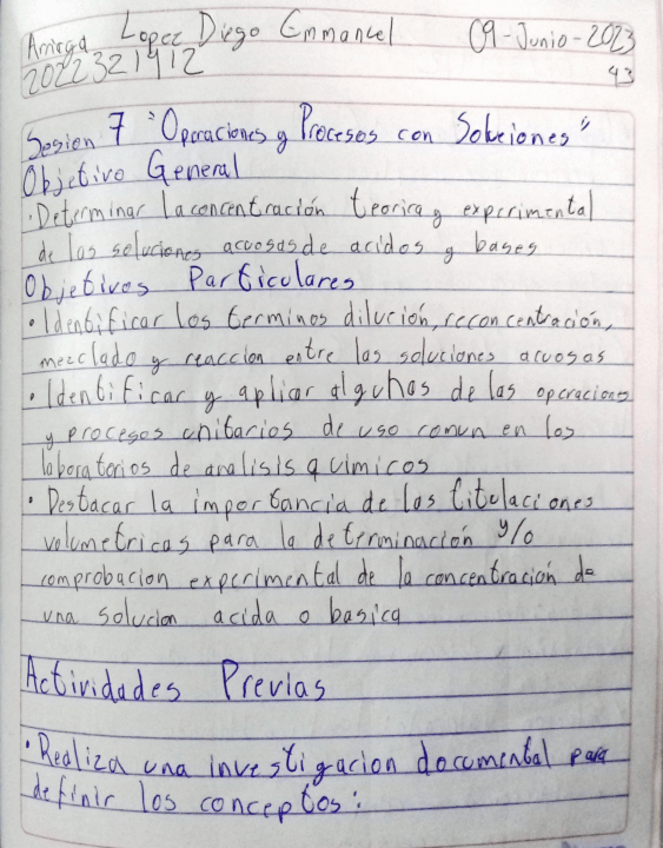 Arriaga Lopez Diego Emmanuel 09-Junio-2023
2022321412 43
Sesion 7 "Operaciones y Procesos con Soluciones"
Objetivo General
·Determinar la concentración teorica y experimental
de las soluciones acuosas de acidos y bases
Objetivos Particulares
•Identificar los terminos dilución, reconcentración,
mezclado y reaccion entre las soluciones acuosas
•Identificar y aplicar algunas de las operaciones
y procesos unitarios de uso comun en los
laboratorios de analisis quimicos
•Destacar la importancia de las titulaciones
volumetricas para la determinación y/o
comprobacion experimental de la concentración de
una solucion acida o basica
Actividades Previas
•Realiza una investigacion documental para
definir los conceptos: